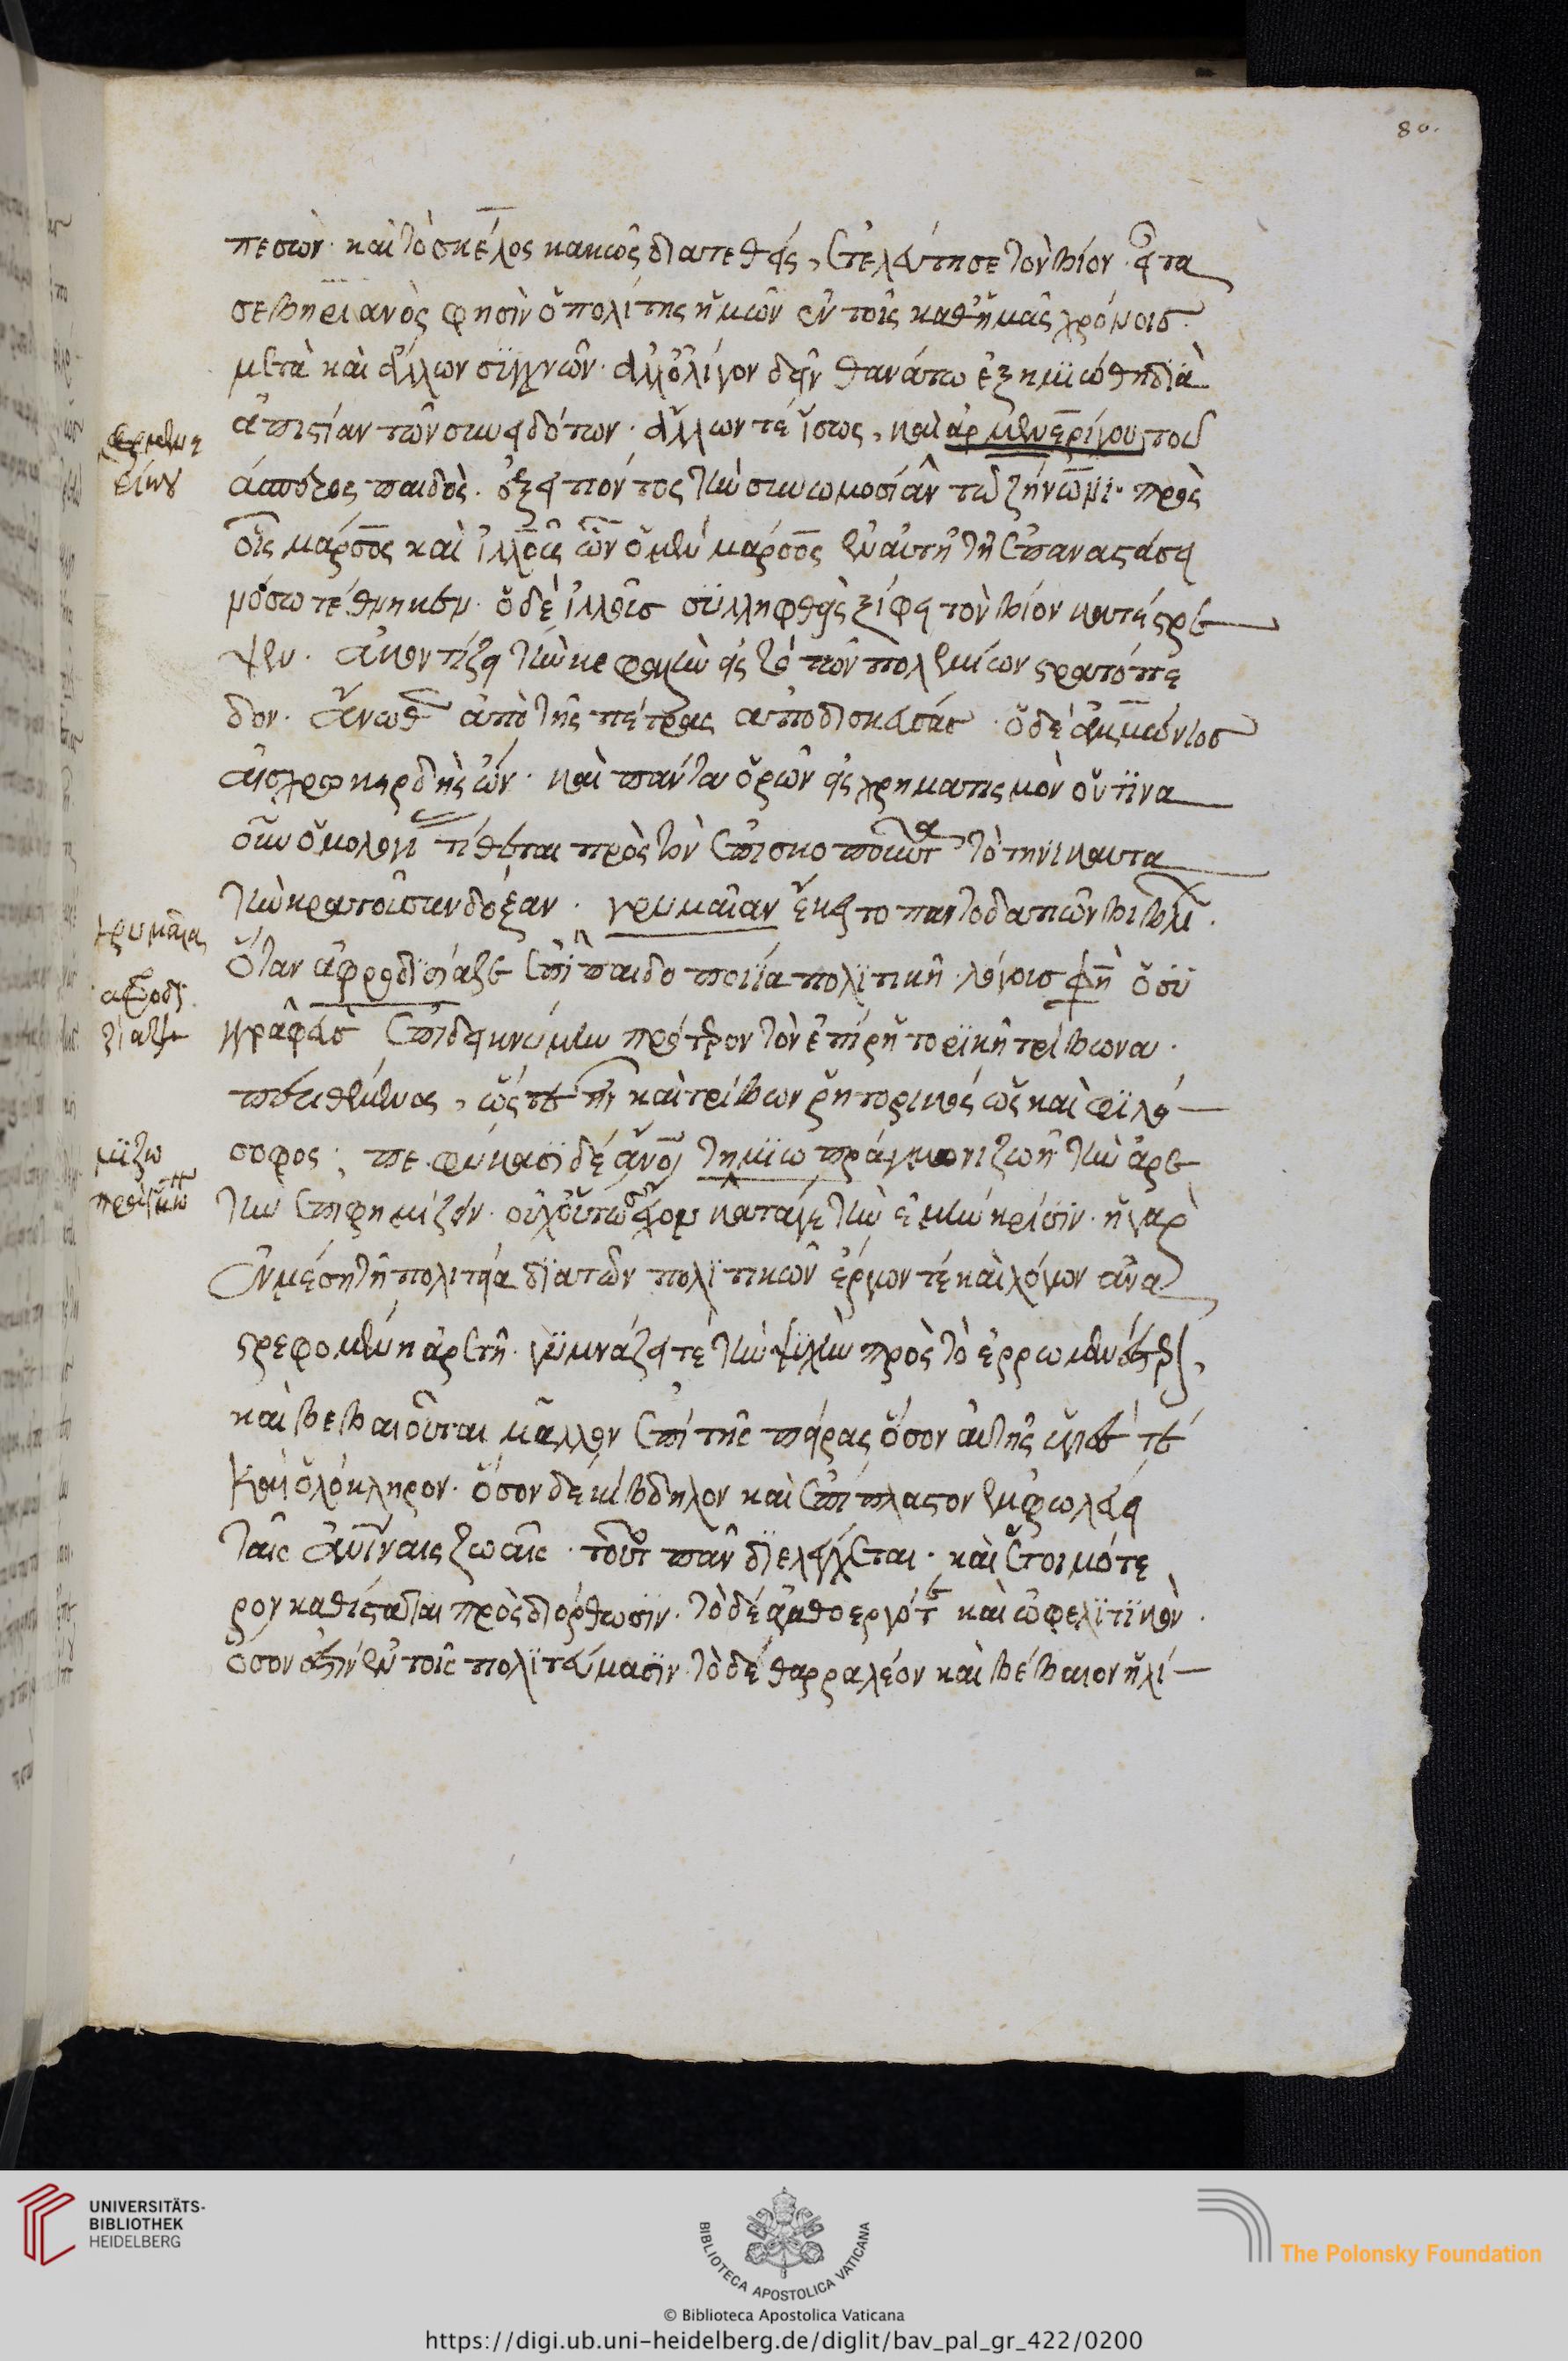 80.
πεσών· καὶ τὸ σκέλος κακῶς διατεθείς, ἐτελεύτησε τὸν βίον. εἶτα
σεβηριανὸς φησὶν ὁ πολίτης ἡμῶν ἐν τοῖς καθ' ἡμᾶς χρόνοις
μετὰ καὶ ἄλλων συχνῶν· ἀλλ' ὀλίγον δεῖν θανάτω ἐζημιώθη διὰ
ἀπιστίαν τῶν συνειδότων· ἄλλων τὲ ἴσως, καὶ ἀρμενερίχου τοῦ
ἄσπερος παιδὸς. ἐξειπόντος τὴν συνωμοσίαν τῶ ζήνωνι· πρὸς
οἷς μάρσος καὶ ἰλλοῖς ὧν ὁ μὲν μάρσος ἐν αὐτῆ τῆ ἐπαναστάσει
νόσω τέθνηκεν· ὁ δὲ ἰλλοῖς συλληφθεὶς ξίφει τὸν βίον κατέστρε
ψεν. ἀκοντίζει τὴν κεφαλὴν εἰς τὸ τῶν πολεμίων στρατόπε
δον. ἄνωθεν ἀπὸ τῆς πέτρας ἀποδισκεύσας· ὁ δὲ ἀμμώνιος
αἰσχροκερδὴς ὤν· καὶ πάντα ὁρῶν εἰς χρηματισμὸν ὁντϊνα
οὖν ὁμολογί τίθεται πρὸς τὸν ἐπισκοποῦντα τὸ τηνικαυτα
τὴν κρατοῦσαν δόξαν. γρυμαίαν ἕκειτο παντοδαπῶν βιβλίων.
ὅταν ἀφροδισιάζε ἐπὶ παιδοποιΐα πολϊτικῆ λόγοις φη ὁ συ
γγραφεὺς ἐπιδεικνύμεν πρότερον τὸν ἐπὶ ῥητορϊκῆ τρίβωνα.
περιθέμενος, ὥστε ἦν καὶ τρίβων ῥητορικός ὡς καὶ φϊλό
σοφος· πεφύκασϊ δέ ἄνοι τῆ μϊω πράγμονι ζωῆ τὴν ἀρε
τὴν ἐπιφημίζειν· οὐχ οὕτω φέρων κατάγε τὴν ἐμὴν κρίσϊν. ἡ γὰρ
ἐν μέση τῆ πολιτεία διὰ τῶν πολϊτικῶν ἔργων τὲ καὶ λόγων ἀνα
στρεφομένη ἀρετὴ· γϋμνάζει τὲ τὴν ψϋχὴν πρὸς τὸ ἐρρωμενέστερ,
καὶ βεβαιοῦται μᾶλλον ἐπὶ τῆς πείρας ὅσον αὐτῆς ὑγιές τέ
καὶ ὁλόκληρον· ὅσον δὲ κίβδηλον καὶ ἐπίπλαστον ἐμφωλεύει
ταῖς ἀνΐναις ζωαῖς· τοῦτ πᾶν διελέγχεται· καὶ ἑτοιμότε
ρον καθίσταται πρὸς διόρθωσϊν. τὸ δὲ ἀγαθοεργόν τε καὶ ὠφελϊτϊκὸν.
ὅσον ἐστὶν ἐν τοῖς πολϊτεύμασϊν. τὸ δὲ θαρραλέον καὶ βέβαιον ἡλί
αρμενε
ρίχου
γρυμαία
αφροδι
σιαζε
μϊζω
πραγμω
UNIVERSITÄTS-
BIBLIOTHEK
HEIDELBERG
BIBLIOTECA APOSTOLICA VATICANA
The Polonsky Foundation
© Biblioteca Apostolica Vaticana
https://digi.ub.uni-heidelberg.de/diglit/bav_pal_gr_422/0200